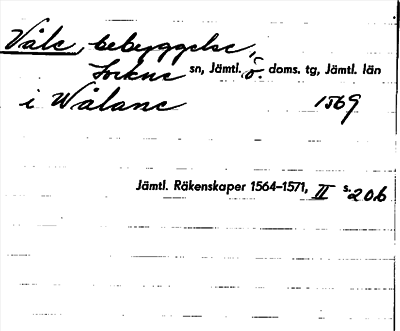 Våle, bebyggelse,
Lockne sn, Jämtl. ö. doms. tg, Jämtl. län
i Wålane 1569
Jämtl. Räkenskaper 1564–1571, II s. 206